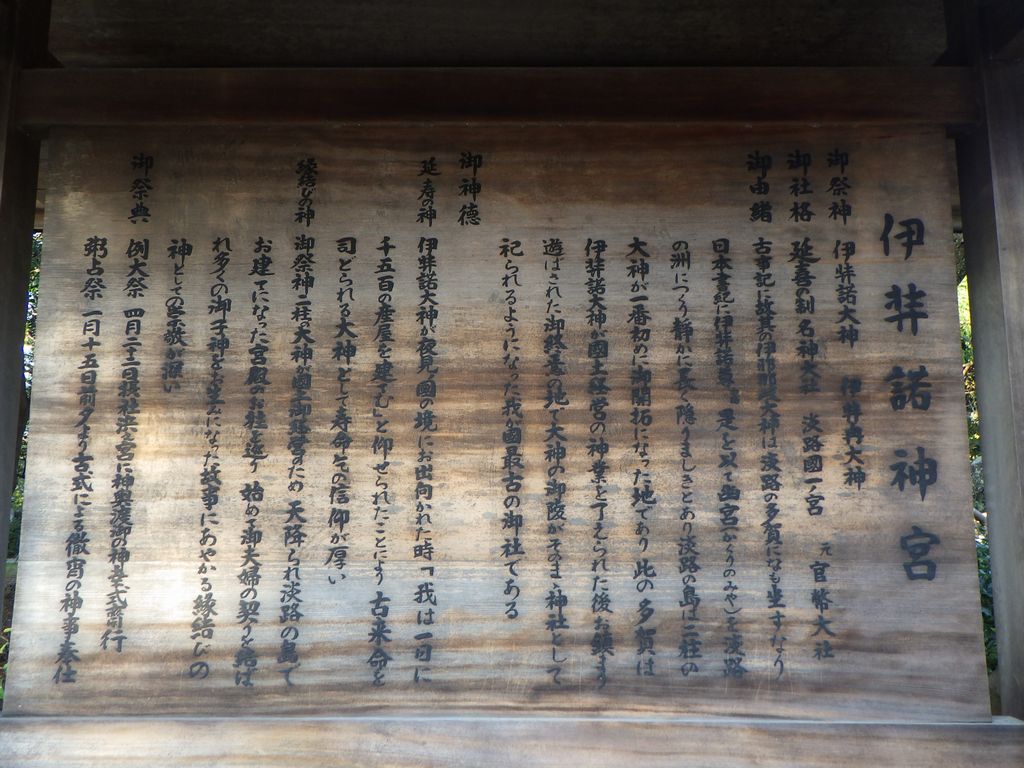 伊弉諾神宮
御祭神 伊弉諾大神 伊弉冉大神
御社格 延喜の制 名神大社 淡路國一宮 元 官幣大社
御由緒 古事記に故其の伊耶那岐大神は淡路の多賀になも坐すなり
日本書紀に伊弉諾尊 是を以て幽宮(かくりのみや)を淡路
の洲につくり静かに長く隠りましきとあり淡路の島は二柱の
大神が一番初めに御開拓になった地であり此の多賀は
伊弉諾大神が國土経営の神業を了えられた後お鎮まり
遊ばされた御終焉の地で大神の御陵がそのまま神社として
祀られるようになった我が國最古の御社である
御神徳
延寿の神 伊弉諾大神が夜見の國の境にお出向かれた時「我は一日に
千五百の産屋を建てむ」と仰せられたことにより古来命を
司どられる大神として寿命の信仰が厚い
縁結びの神 御祭神二柱の大神が國土御経営のため天降られ淡路の島で
お建てになった宮殿のお柱を巡り始めて御夫婦の契りを結ば
れ多くの御子神をお生みになった故事にあやかる縁結びの
神としての崇敬が深い
御祭典 例大祭 四月二十二日摂社浜之宮に神輿渡御の神幸式斎行
粥占祭 一月十五日前夕より古式による徹宵の神事奉仕